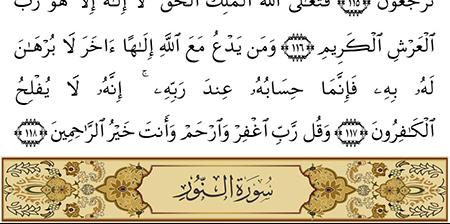 تُرْجَعُونَ ﴿١١٥﴾ فَتَعَٰلَى ٱللَّهُ ٱلْمَلِكُ ٱلْحَقُّ لَآ إِلَٰهَ إِلَّا هُوَ رَبُّ
ٱلْعَرْشِ ٱلْكَرِيمِ ﴿١١٦﴾ وَمَن يَدْعُ مَعَ ٱللَّهِ إِلَٰهًا ءَاخَرَ لَا بُرْهَٰنَ
لَهُۥ بِهِۦ فَإِنَّمَا حِسَابُهُۥ عِندَ رَبِّهِۦٓ ۚ إِنَّهُۥ لَا يُفْلِحُ
ٱلْكَٰفِرُونَ ﴿١١٧﴾ وَقُل رَّبِّ ٱغْفِرْ وَٱرْحَمْ وَأَنتَ خَيْرُ ٱلرَّٰحِمِينَ ﴿١١٨﴾
سُورَةُ النُّورِ